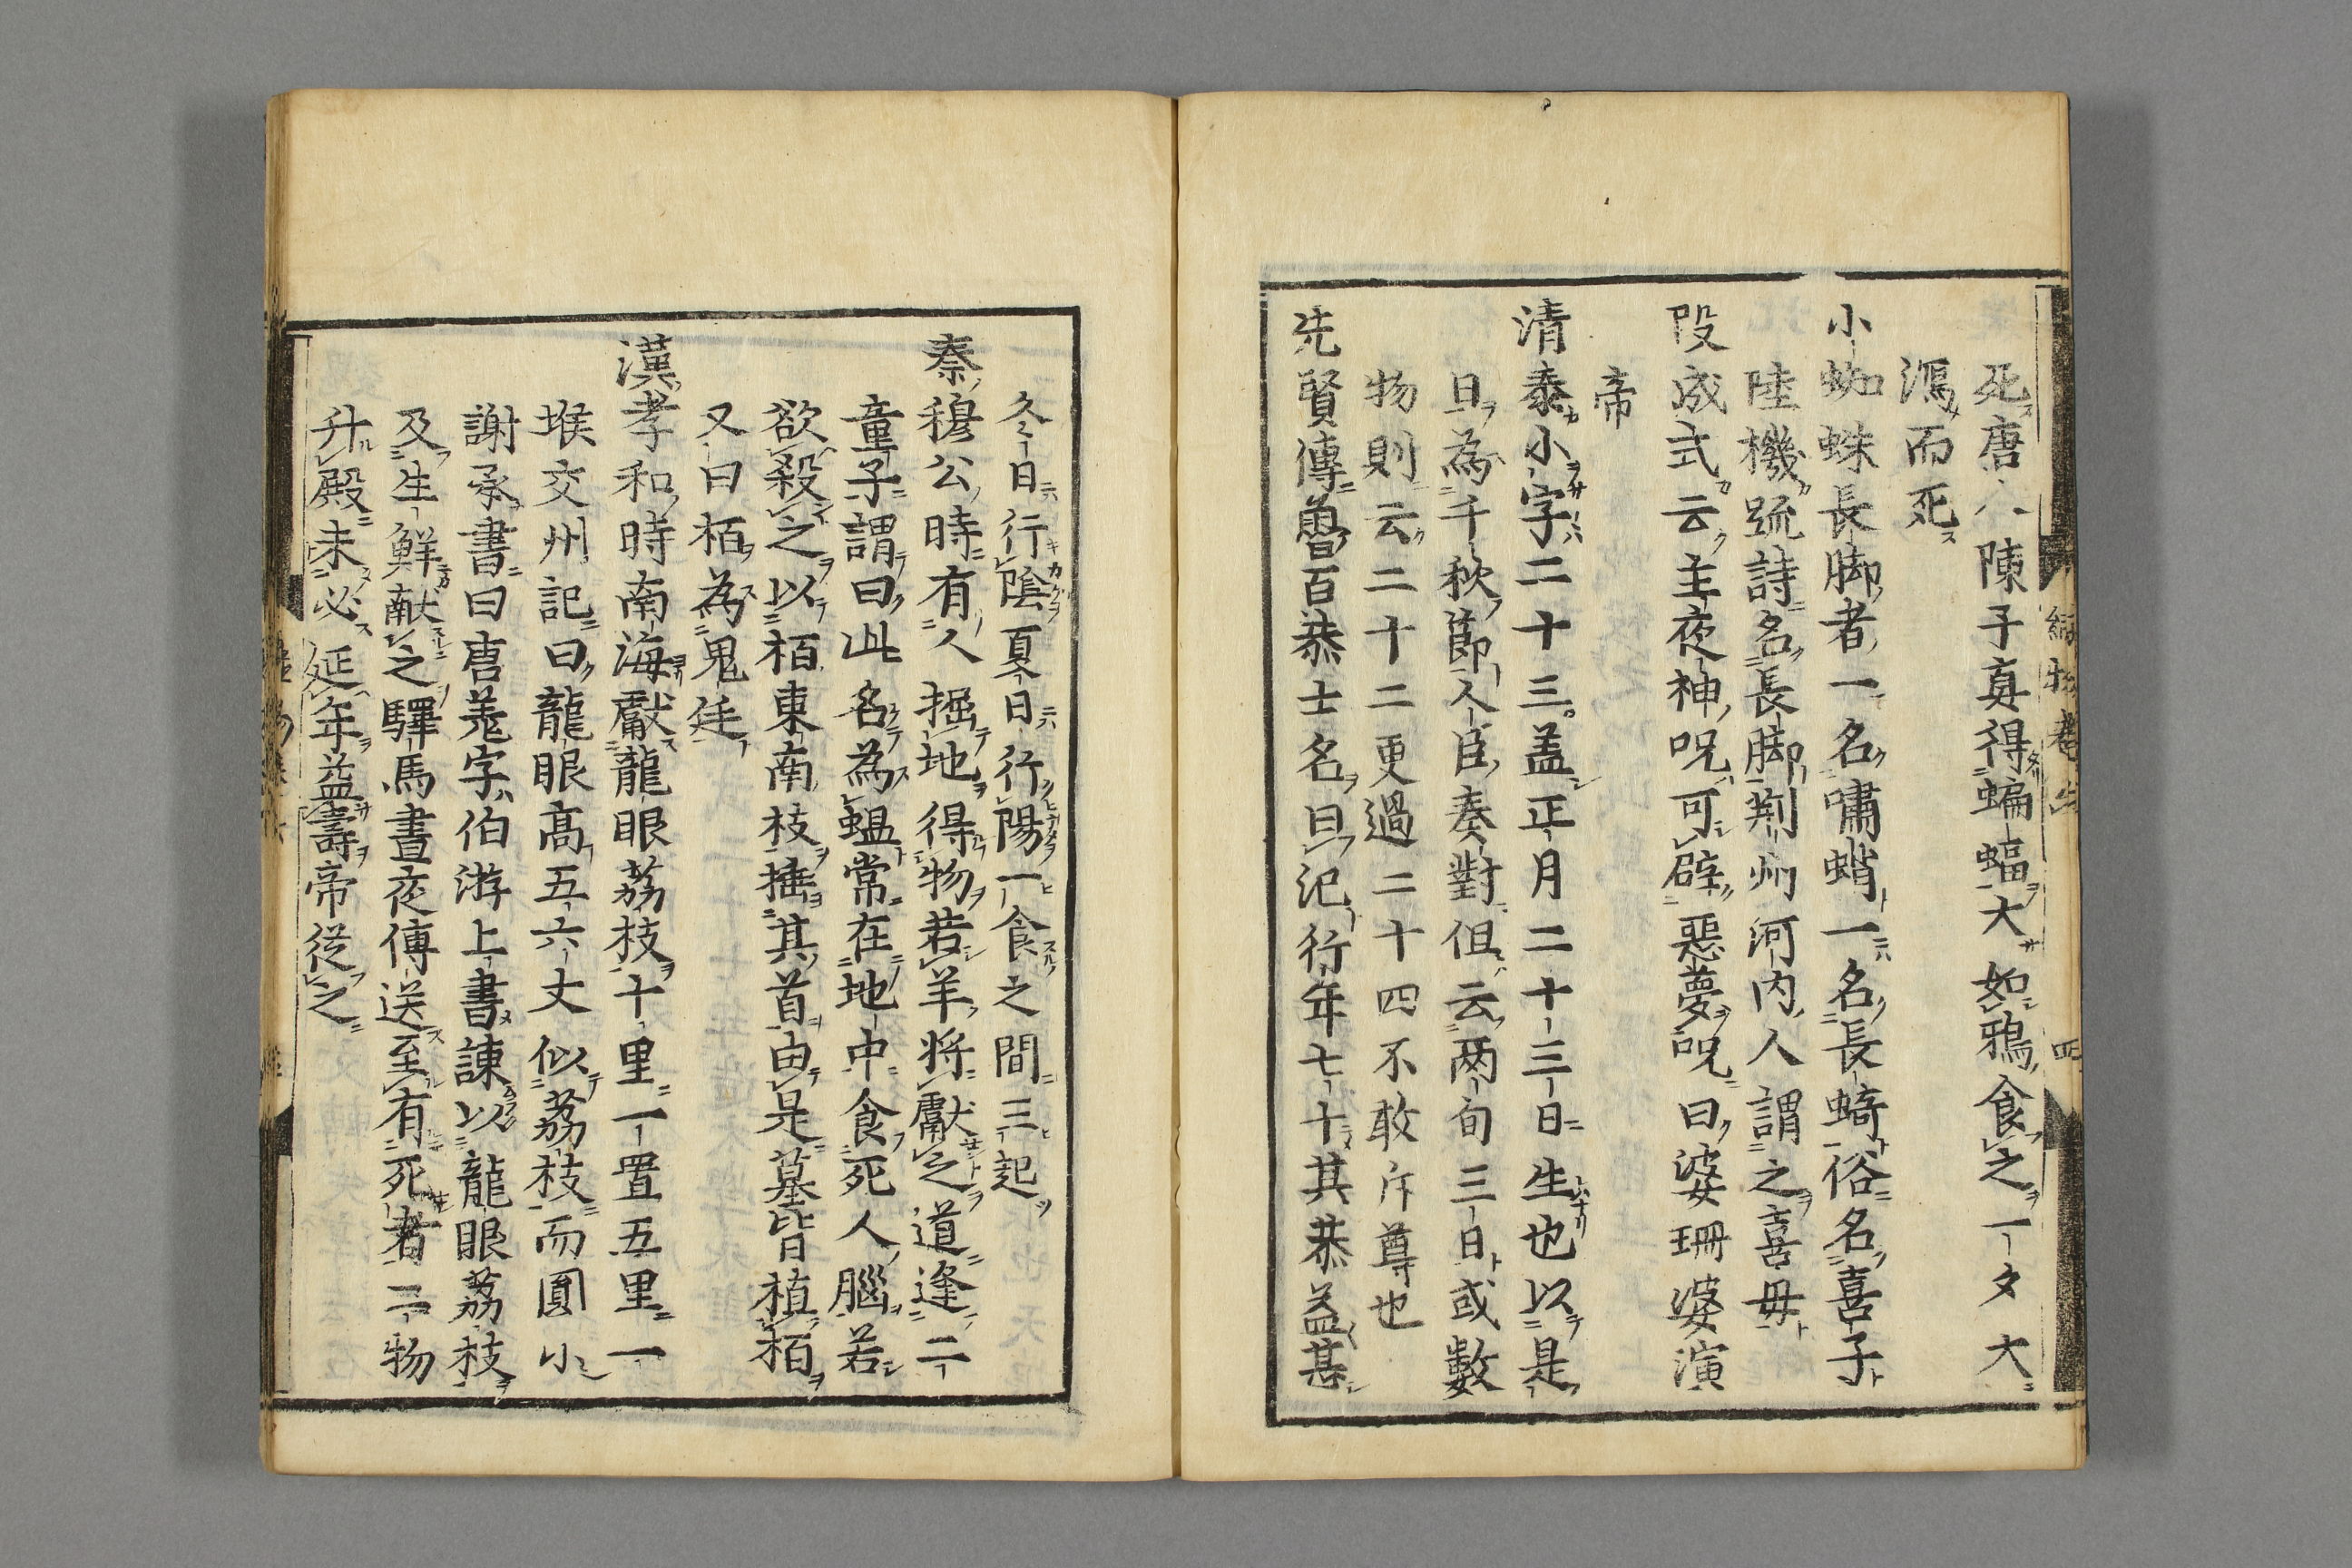 死唐人陳子真得蝙蝠大如鴉食之一夕大
瀉而死
小蜘蛛長脚者一名嘯蛸一名長蜻俗名喜子
陸機䟽詩名長脚荆州河内人謂之喜母
段成式云主夜神呪可辟惡夢呪曰婆珊婆演
帝
清泰小字二十三盖正月二十三日生也以是
日為千秋節人臣奏對但云两旬三日或數
物則云二十二更過二十四不敢斥尊也
先賢傳魯百恭士名曰氾行年七十其恭益甚
冬日行陰夏日行陽一食之間三起
秦穆公時有人掘地得物若羊將獻之道逢二
童子謂曰此名為蝹常在地中食死人腦若
欲殺之以栢東南枝捶其首由是墓皆植栢
又曰栢為鬼廷
漢孝和時南海獻龍眼荔枝十里一置五里一
堠交州記曰龍眼高五六丈似荔枝而圓小
謝承書曰唐羗字伯游上書諫以龍眼荔枝
及生鮮献之驛馬晝夜傳送至有死者二物
升殿未必延年益壽帝從之